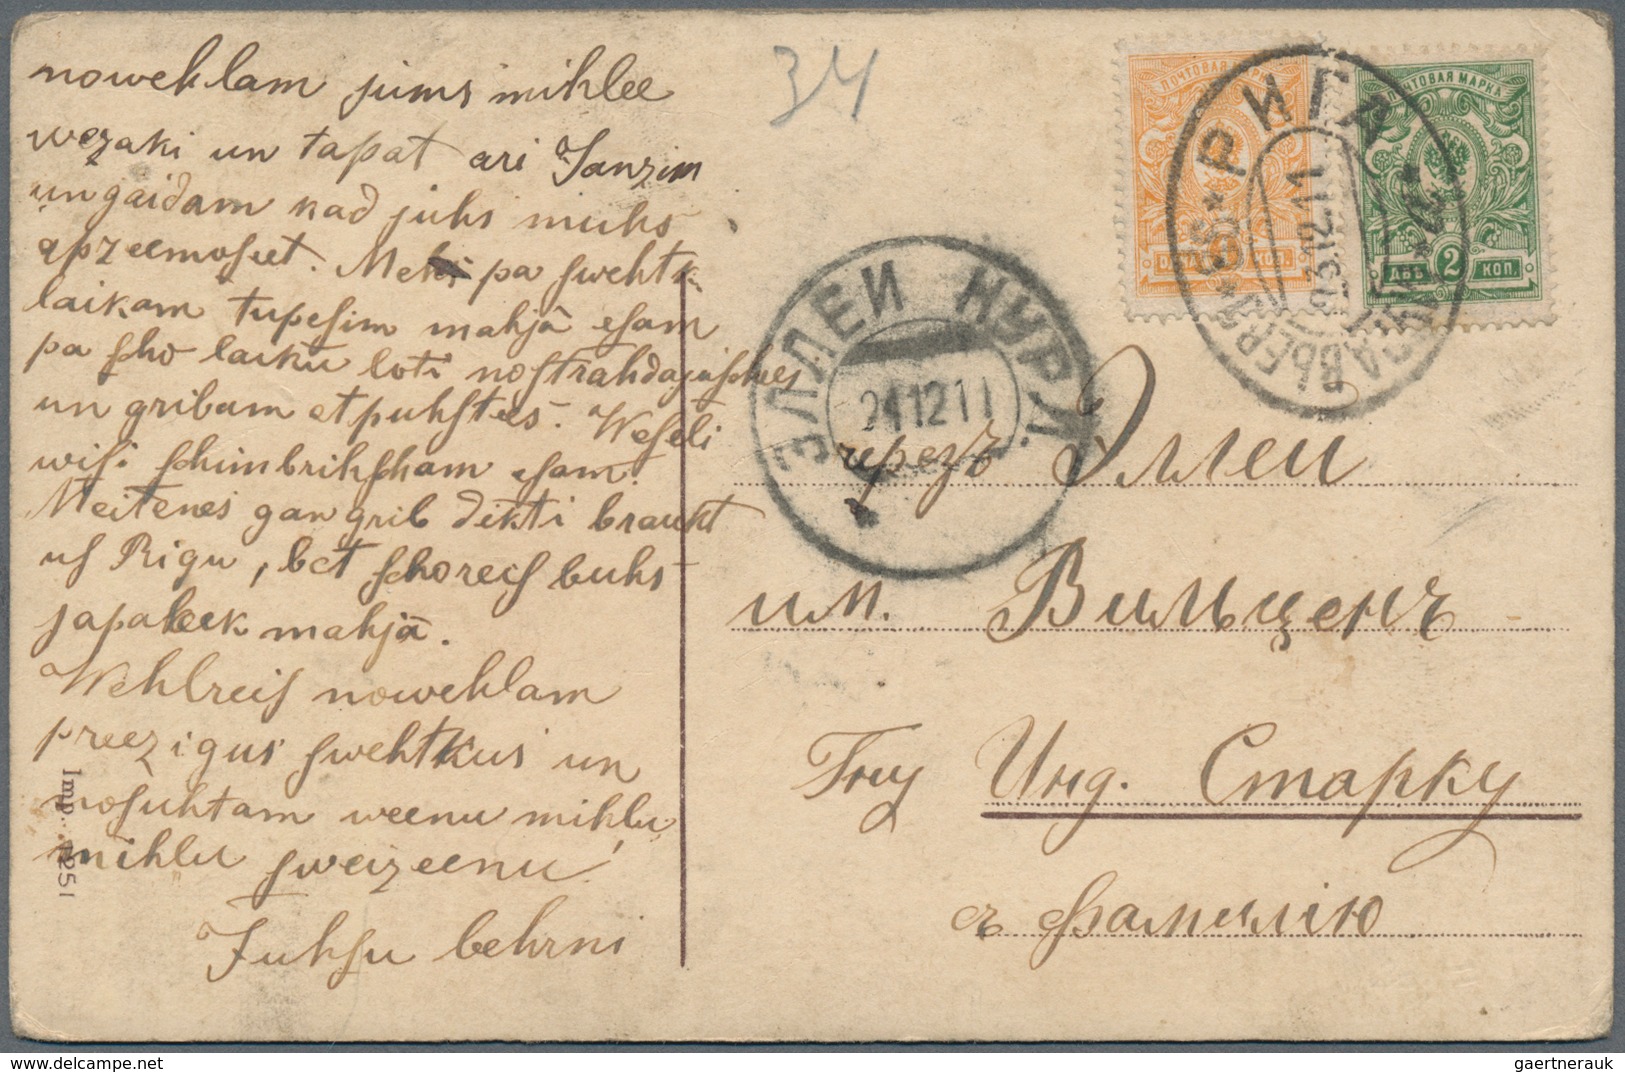 nowehlam jums mihlee
wezaki un tapat ari Janzim
un gaidam kad juhs muhs
apzeemoſeet. Mehs pa ſwehtk
laikam tupeſim mahjâ eſam
pa ſcho laiku loti noſtrahdajuſchees
un gribam atpuhſtees. Weſeli
wiſi ſchimbrihſcham eſam.
Meitenes gan grib dikti braukt
uſ Rigu, bet ſchoreiſ buhs
japaleek mahjâ.
Wehlreiſ nowehlam
preezigus ſwehtkus un
noſuhtam weenu mihlu,
mihlu ſweizeenu!
Juhſu behrni
Imp. 1251
34
ПОЧТОВАЯ МАРКА
ПОЧТОВАЯ МАРКА
КОП.
ДВѢ 2 КОП.
РИГА
23.12.11
ЭЛЛЕЙ КУРЛ.
24 12 11
черезъ Эллеи
им. Вильценъ
Гну Инд. Старку
съ фамиліею
gaertnerauk
www.delcampe.net